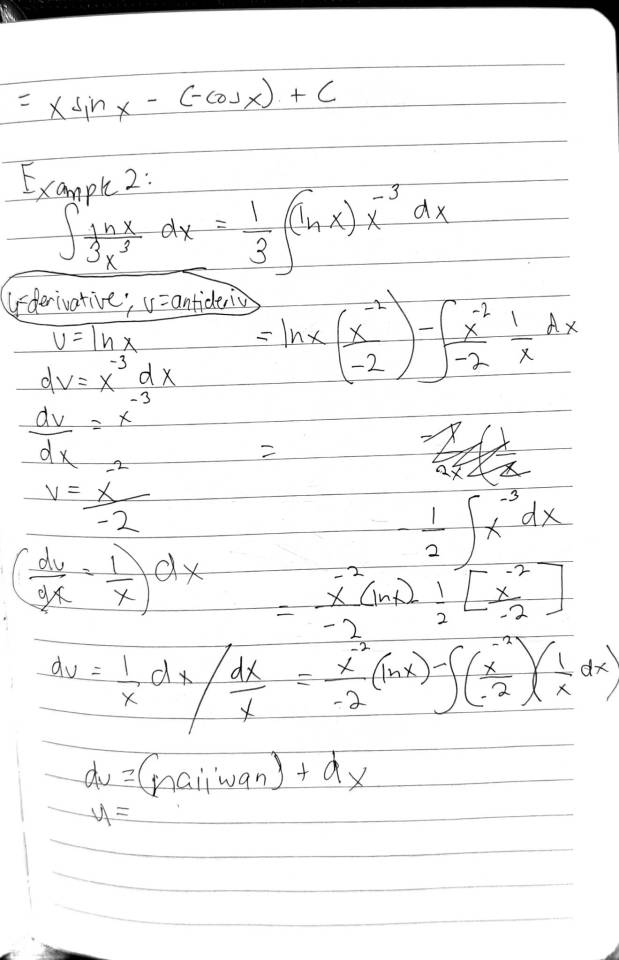 = x sin x - (-cos x) + C
Example 2:
∫ ln x / 3x³ dx = 1/3 ∫ (ln x) x⁻³ dx
u=derivative; v=antideriv
u = ln x = ln x (x⁻²/-2) - ∫ x⁻²/-2 1/x dx
dv = x⁻³ dx
dv/dx = x⁻³
=
v = x⁻²/-2
- 1/2 ∫ x⁻³ dx
(du/dx = 1/x) dx
= x⁻²/-2 (ln x) 1/2 [x⁻²/-2]
du = 1/x dx / dx/x = x⁻²/-2 (ln x) - ∫ (x⁻²/-2)(1/x dx)
du = (naiiwan) + dx
u =